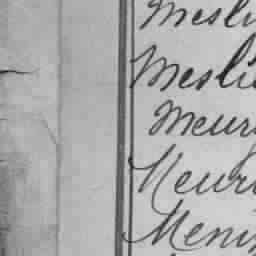 Mesli
Mesli
Meur
Meur
Meni